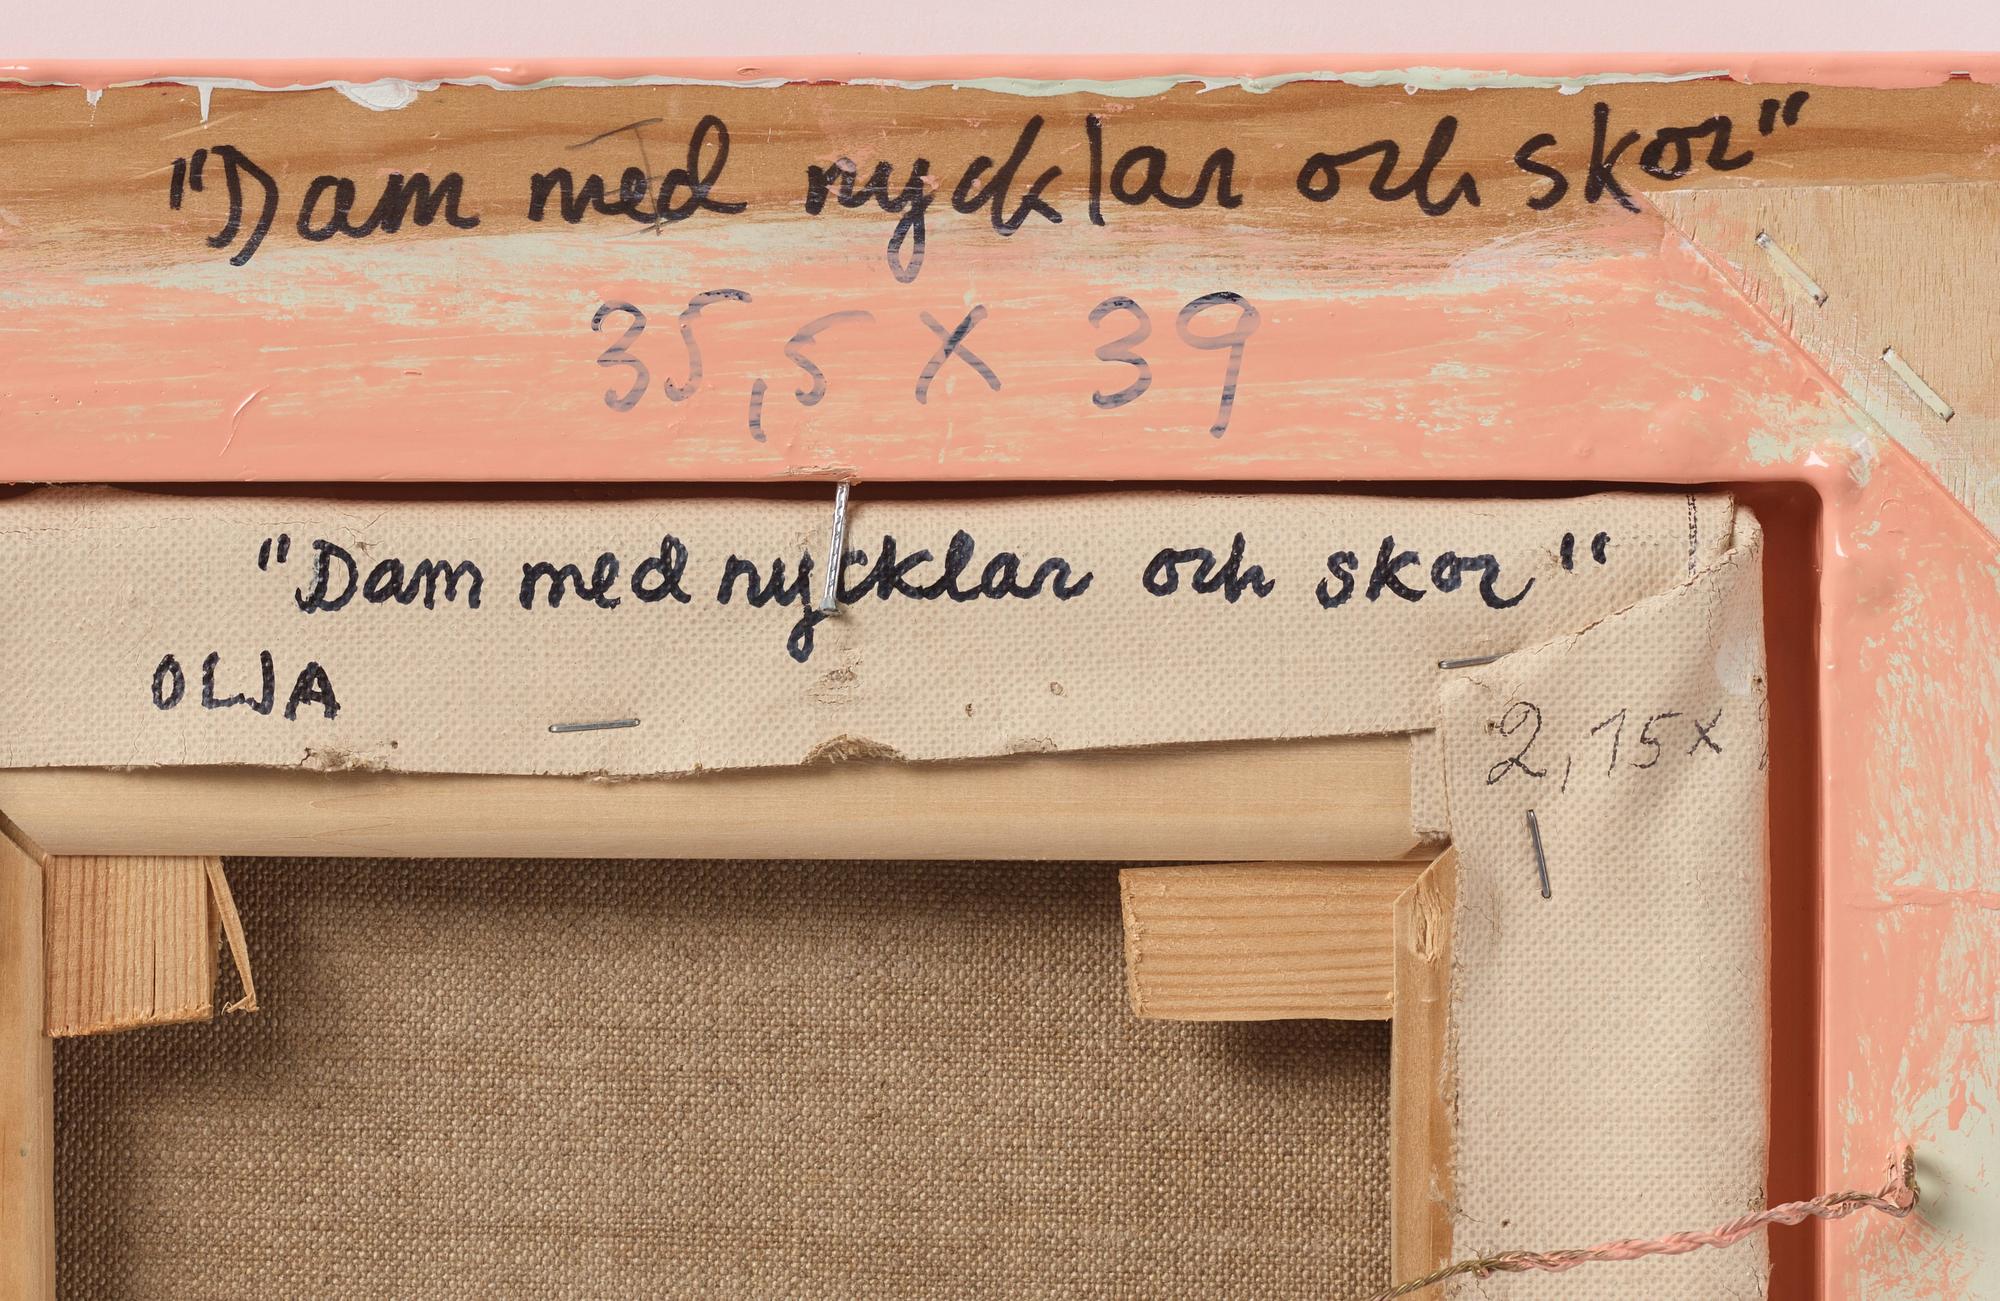 "Dam med nycklar och skor"
35,5 X 39
"Dam med nycklar och skor"
OLJA
2,15x